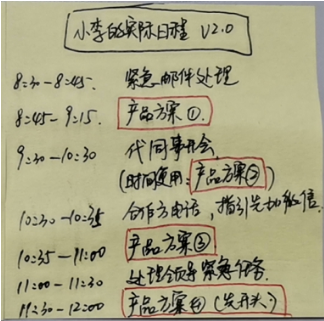 小李的实际日程 V2.0
8:30-8:45. 紧急邮件处理
8:45-9:15. 产品方案①.
9:30-10:30 代同事开会
(时间使用:产品方案②)
10:30-10:35 合作方电话,指引先加微信.
10:35-11:00 产品方案③
11:00-11:30 处理领导紧急任务.
11:30-12:00 产品方案④(先开头:)